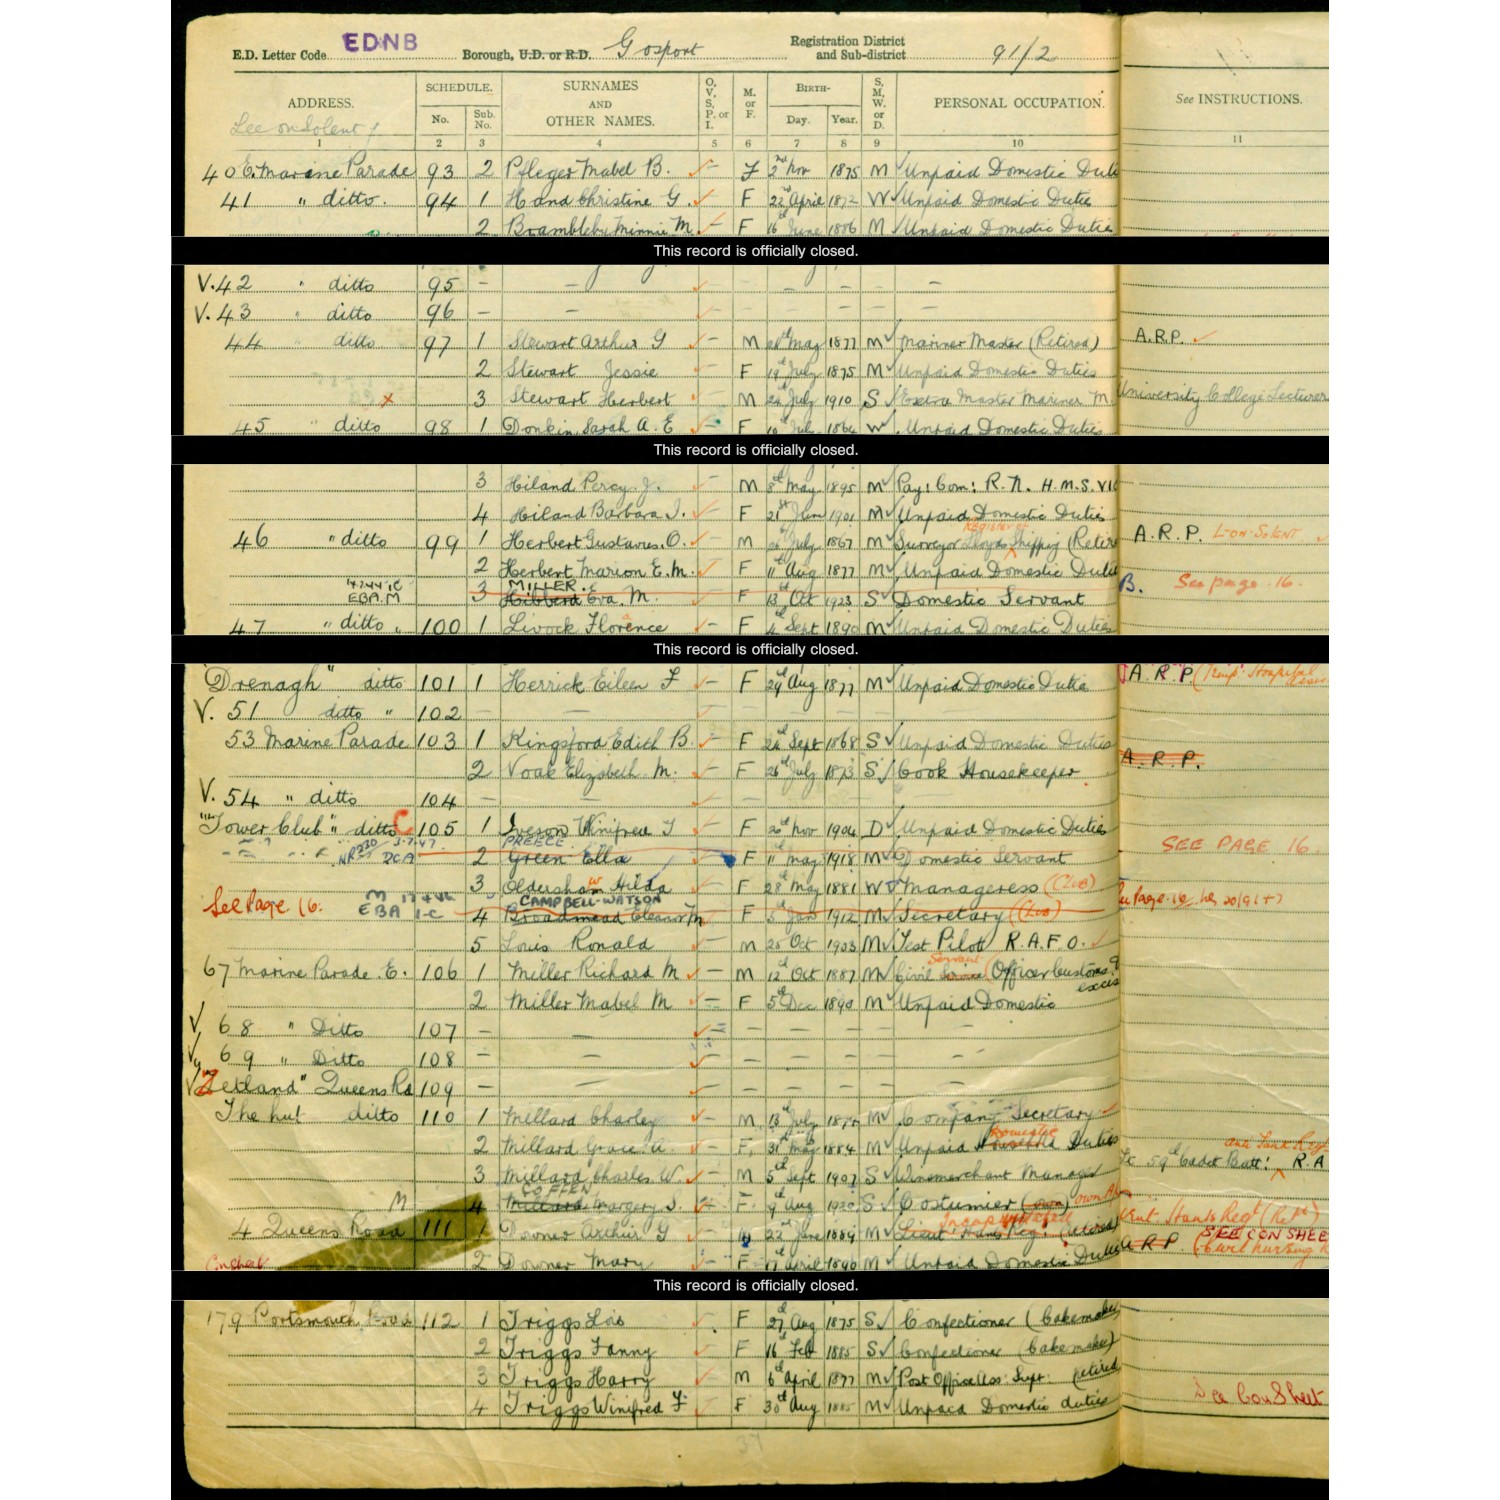 E.D. Letter Code EDNB Borough, U.D. or R.D. Gosport Registration District and Sub-district 91/2
ADDRESS. SCHEDULE. No. Sub. No. SURNAMES AND OTHER NAMES. O, V, S, P, or I. M. or F. BIRTH- Day. Year. S, M, W, or D. PERSONAL OCCUPATION. See INSTRUCTIONS.
Lee on Solent
1 2 3 4 5 6 7 8 9 10 11
40 E. Marine Parade 93 2 Pfleger Mabel B. – F 2nd Nov 1875 M Unpaid Domestic Duti
41 " ditto. 94 1 Hand Christine G. F 22nd April 1872 W Unpaid Domestic Duties
2 Brambleby Minnie M. F 16th June 1886 M Unpaid Domestic Duties
This record is officially closed.
V. 42 " ditto 95 – – – – –
V. 43 " ditto 96 – – – –
44 ditto 97 1 Stewart Arthur G – M May 1877 M Mariner Master (Retired) A.R.P.
2 Stewart Jessie F 19th July 1875 M Unpaid Domestic Duties
x 3 Stewart Herbert M July 1910 S Extra Master Mariner M. University College Lecturer
45 ditto 98 1 Donkin Sarah A. E F W Unpaid Domestic Duties
This record is officially closed.
3 Hiland Percy J. M 8th May 1895 M Pay: Com: R.N. H.M.S. VI
4 Hiland Barbara J. F 21st 1901 M Unpaid Domestic Duties
46 " ditto 99 1 Herbert Gustavus. O. – M July 1867 M Surveyor Lloyds Register of Shipping (Retire A.R.P. L-ON-SOLENT
2 Herbert Marion E. M. F 11th Aug 1877 M Unpaid Domestic Duti
EBA. M 3 Hibberd MILLER. Eva. M. F 13th Oct 1923 S Domestic Servant B. See page 16.
47 " ditto " 100 1 Livock Florence – F 4 Sept 1890 M Unpaid Domestic Duties
This record is officially closed.
"Drenagh" ditto 101 1 Herrick Eileen F – F 29th Aug 1877 M Unpaid Domestic Dutie A.R.P. (Temp. Hospital
V. 51 ditto " 102 – –
53 Marine Parade 103 1 Kingsford Edith B. – F 24th Sept 1868 S Unpaid Domestic Duties
2 Voak Elizabeth M. F 26th July 1873 S Cook Housekeeper A.R.P.
V. 54 " ditto 104 – –
"Tower Club" ditto C 105 1 Iveson Winifred J F 20th Nov 1904 D Unpaid Domestic Duties
NR230 3.7.47 DCA 2 Green PREECE Ella F 11th May 1918 M Domestic Servant SEE PAGE 16.
3 Oldershaw Hilda F 28th May 1881 W Manageress (Club)
See Page 16. M EBA 1-C 4 Broadmead CAMPBELL-WATSON Eleanor M F 5th Jan 1912 M Secretary (Club) Page 16
5 Louis Ronald – M 25 Oct 1903 M Test Pilot R.A.F.O.
67 Marine Parade. E. 106 1 Miller Richard M – M 12th Oct 1887 M Civil Servant (Officer Customs & excis
2 Miller Mabel M – F 5th Dec 1890 M Unpaid Domestic
V 68 " Ditto 107 – – – – – –
V 69 " Ditto 108 – – – – – –
V "Zetland" Queens Rd 109 – – – – – –
The hut ditto 110 1 Millard Charley – M 13th July M Company Secretary
2 Millard Grace A. – F. 31st May 1884 M Unpaid Domestic Duties
3 Millard Charles W. – M 5th Sept 1907 S Winemerchant Manager 59th Cadet Batt: R.A
M 4 Millard COFFEN Margery J. F 9th Aug S Costumier (own) own A/c
4 Queens Road 111 1 Downer Arthur G – M 22nd June 1889 M Lieut Hants Reg: (retired) Incapacitated Hants Regt (Retd) SEE CON SHEE
2 Downer Mary – F 17th April 1890 M Unpaid Domestic Duties A R P. (Civil nursing R
This record is officially closed.
179 Portsmouth Road 112 1 Triggs Lois F 27th Aug 1875 S Confectioner (Cakemaker)
2 Triggs Fanny F 16th Feb 1885 S Confectioner (Cakemaker)
3 Triggs Harry M 6th April 1877 M Post Office Ass: Supt: (retired
4 Triggs Winifred F F 30th Aug 1885 M Unpaid Domestic duties See Con Sheet
37